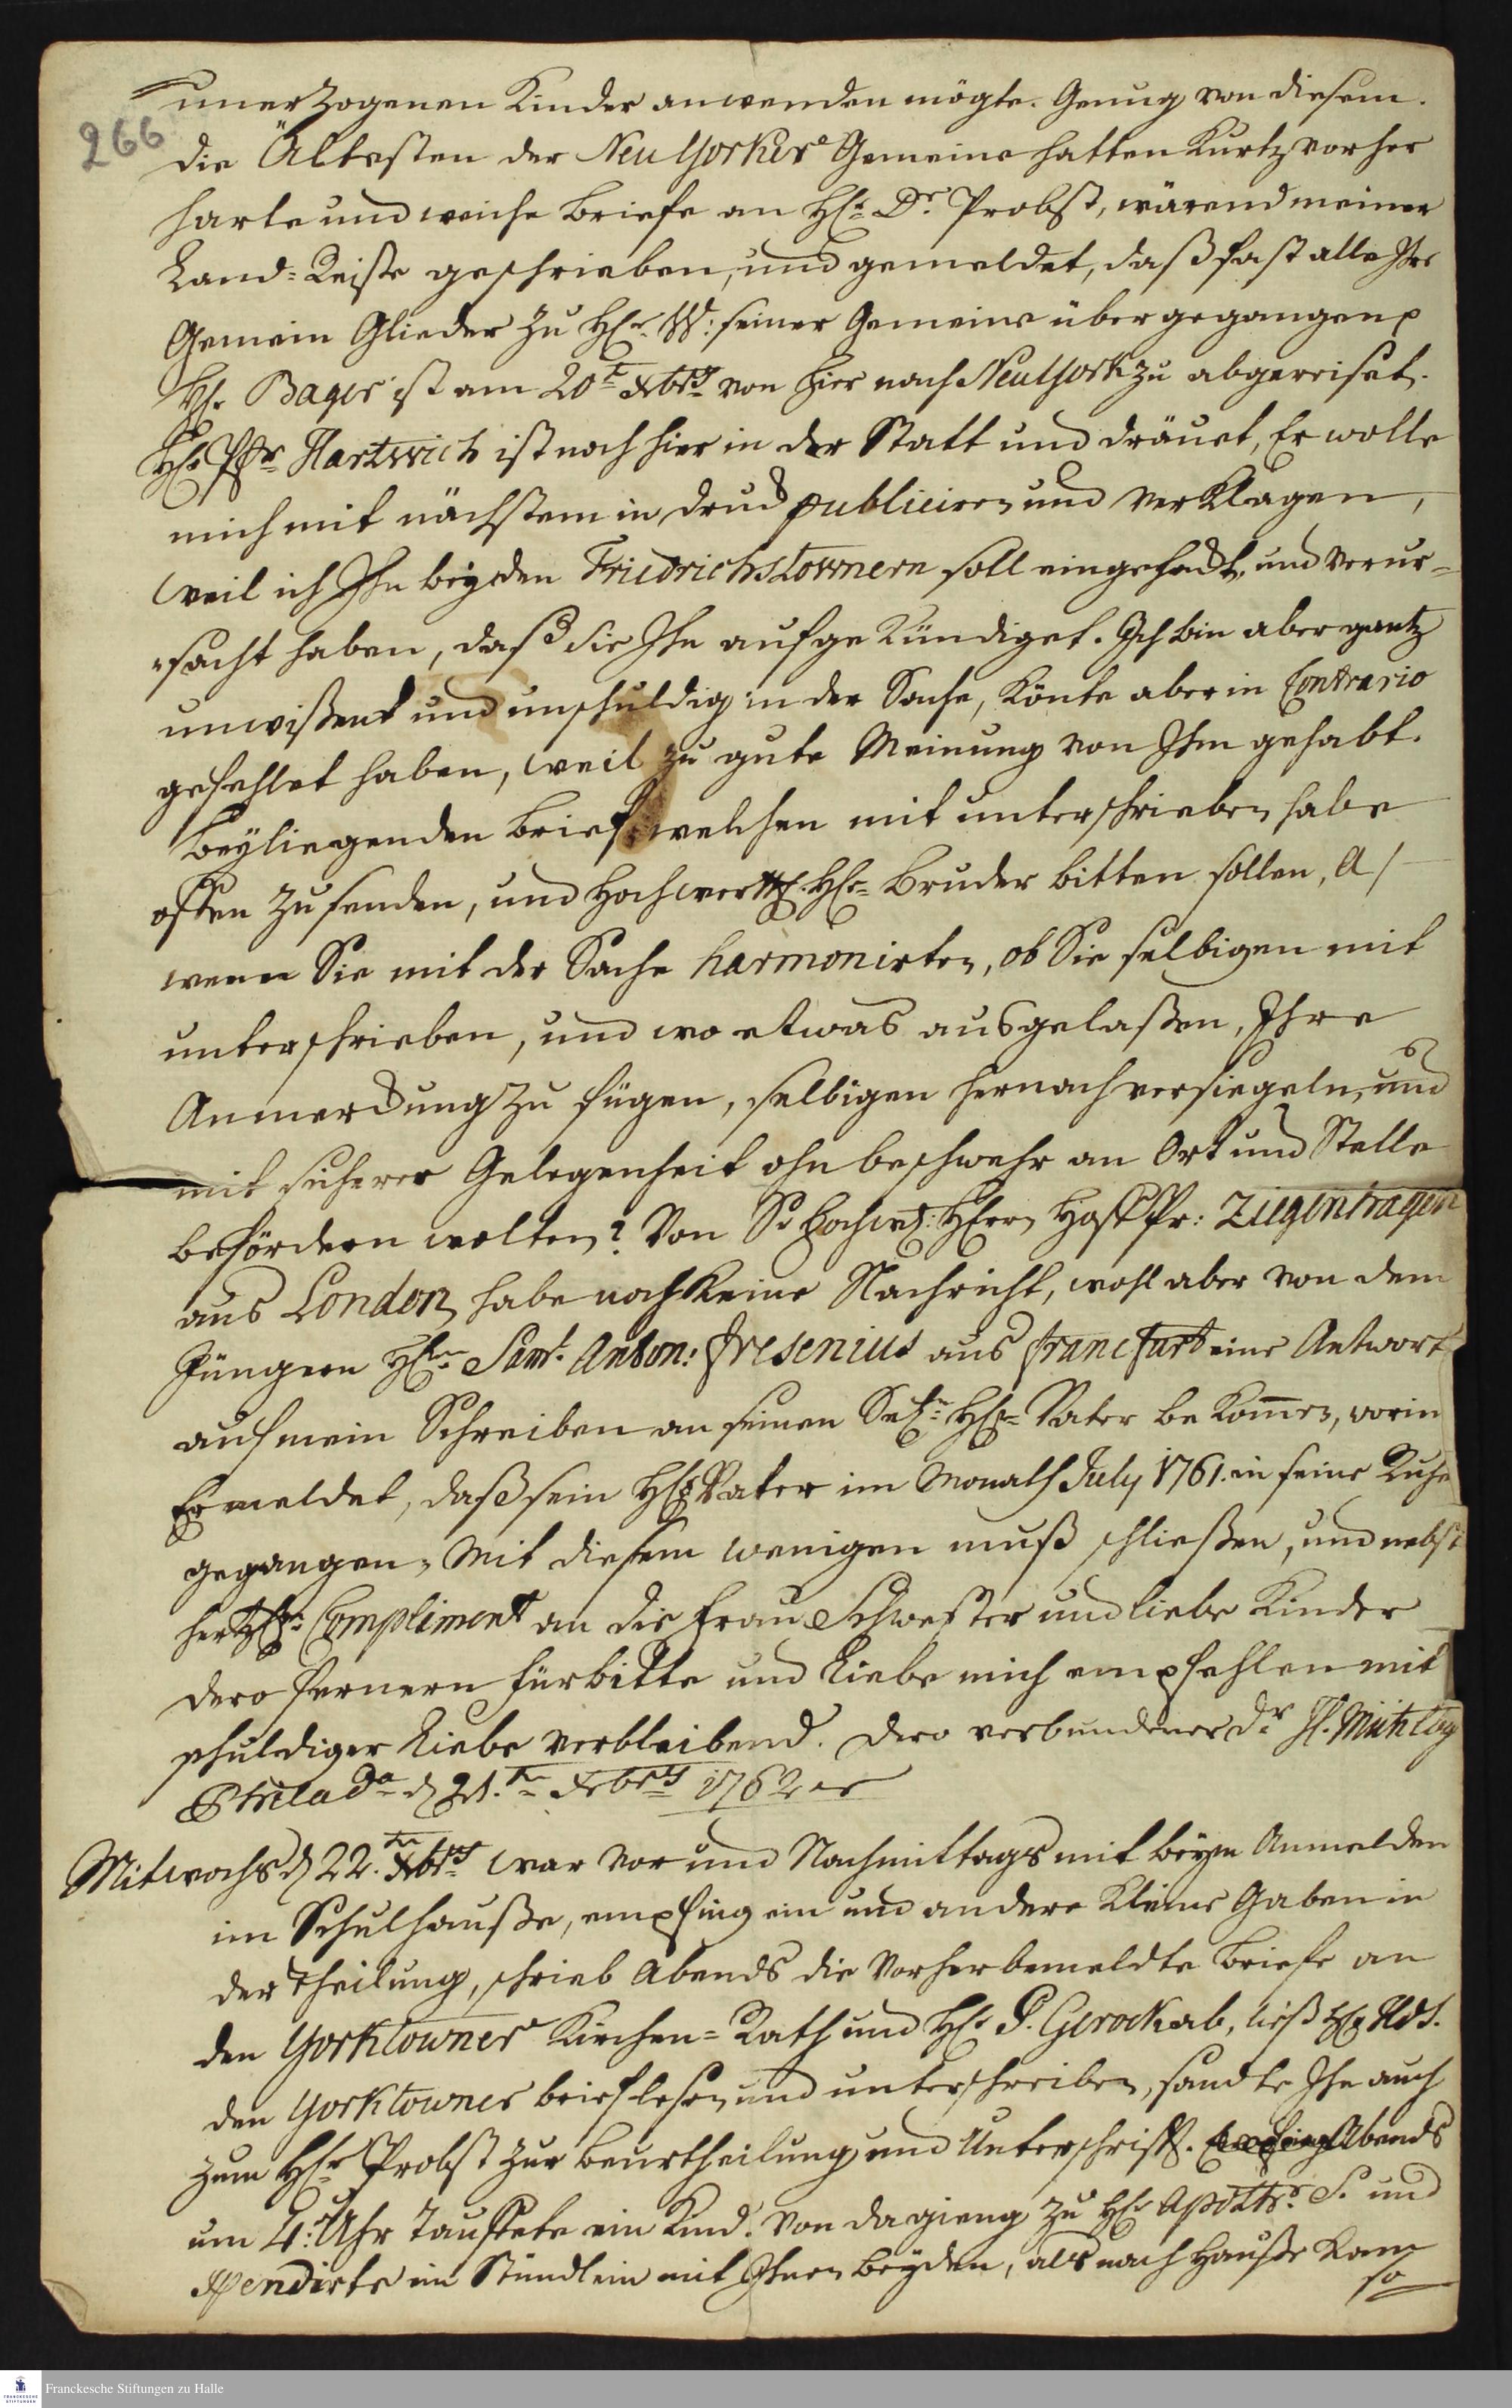 266
unerzogenen Kinder anwenden mögte. Genug von diesem.
die Ältesten der Neu Yorker Gemeine hatten Kurtz vorher
harte und weiche Briefe an HE. Dr. Probst, wärend meiner
Land=Reise geschrieben, und gemeldet, daß fast alle Ihre
Gemein Glieder zu HE. W: seiner Gemeine übergegangen p
HE. Bager ist am 20t Xbris von hier nach Neu York zu abgereiset.
HE. Pfr. Hartwich ist noch hier in der Statt und dräuet, Er wolle
mich mit nächstem in druck publiciren und verklagen,
weil ich Ihn bey den Friedrichstownern soll eingehackt, und verur=
=sacht haben, daß sie Ihn aufgekündiget. Ich bin aber gantz
unwißent und unschuldig in der Sache, könte aber in Contrario
gefehlet haben, weil zu gute Meinung von Ihm gehabt.
Beyliegenden Brief welchen mit unterschrieben habe
offen zu senden, und Hochwerth. HE. Bruder bitten sollen, a/
wenn Sie mit der Sache harmonirten, ob Sie selbigen mit
unterschrieben, und wo etwas ausgelaßen, Ihre
Anmerckung zu fügen, selbigen hernach versiegeln, und
mit sicherer Gelegenheit ohnbeschwehr an Ort und Stelle
befördern wolten? Von Sr Hochw: HErrn Hoff Pr: Ziegenhagen
aus London habe noch keine Nachricht, wohl aber von dem
Jüngern HE. Saml. Anton: Fresenius aus Francfurt eine Antwort
auf mein Schreiben an seinen Sel: HE. Vater bekommen, worin
Er meldet, daß sein HE. Vater im Monath July 1761. in seine Ruhe
gegangen. Mit diesem wenigen muß schließen, und nebst
hertzl: Compliment an die Frau Schwester und liebe Kinder
dero fernern Fürbitte und Liebe mich empfehlen mit
schuldiger Liebe verbleibend. Dero verbundener dr H. Mühlbg
Philada d 21.ten Xbris 1762
Mitwochs d 22.ten Xbris war vor und Nachmittags mit beym Anmelden
im Schulhauße, empfing ein und andere kleine Gaben in
der Theilung, schrieb Abends die vorherbemeldte Briefe an
den Yorktowner Kirchen=Rath und HE. P. Gerock ab, ließ HE. Hds.
den Yorktowner brief lesen und unterschreiben, sandte Ihn auch
zum HE. Probst zur Beurtheilung und Unterschrifft. Abends
um 4. Uhr Tauffete ein Kind. Von da gieng zu HE. Apothr. S. und
spendirte ein Stündlein mit Ihnen beyden, als nach Hauße kam
so
Franckesche Stiftungen zu Halle